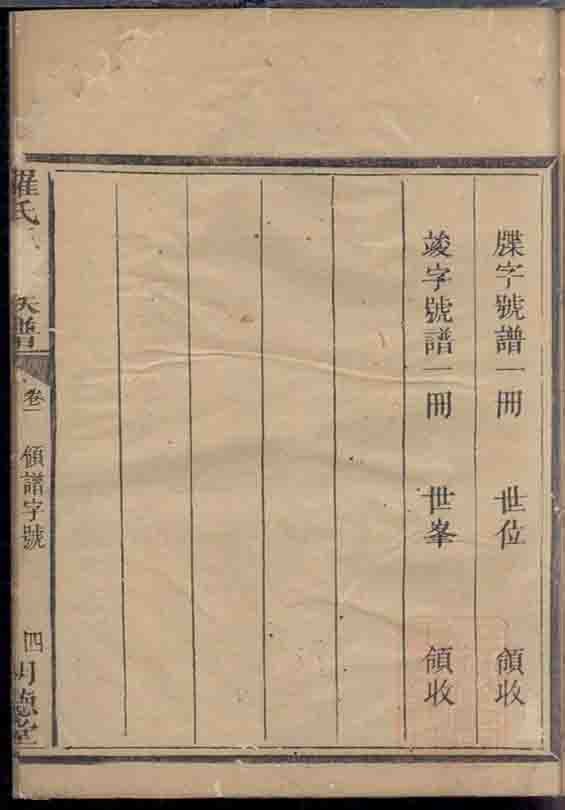 牒字號譜一冊 世位 領收
竣字號譜一冊 世峯 領收
羅氏 族譜 卷一 領譜字號 四 明德堂